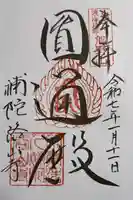 奉拝
令和七年一月十一日
圓通殿
補陀洛寺